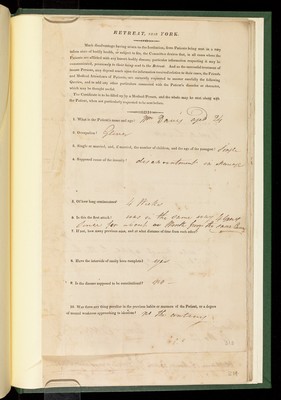 RETREAT, near YORK.
Much disadvantage having arisen to the Institution, from Patients being sent in a
state of bodily health, of
Patients are afflicted with any known bodily disease, particular information respecting it may be
communicated, previously to their being sent to the Retreat. And as the successful treatment of
insane Persons, may depend much upon the information received relative to their cases, the Friends
and Medical Attendants of Patients, are earnestly requested to answer carefully the following
Queries, and to add any other particulars connected with the Patient's disorder or character,
which may be thought useful.
The Certificate is to be filled up by a Medical Person, and the whole may be sent along with
the Patient, when not particularly requested to be sent before.
1. What is the Patient's name and age? Wm Davis aged 24
2. Occupation?
3. Single or married; and, if married, the number of children, and the age of the youngest? Single
4. Supposed cause of the insanity? disappointment in marriage
5. Of how long continuance? 4 Weeks
6. Is this the first attack? was in the same way 2 Years
since for about a Month from the same Cause
7. If not, how many previous ones, and at what distance of time from each other?
8. Have the intervals of sanity been complete? yes
9. Is the disease supposed to be constitutional? no
10. Was there any thing peculiar in the previous habits or manners of the Patient, or a degree
of mental weakness approaching to idiotism? no the contrary